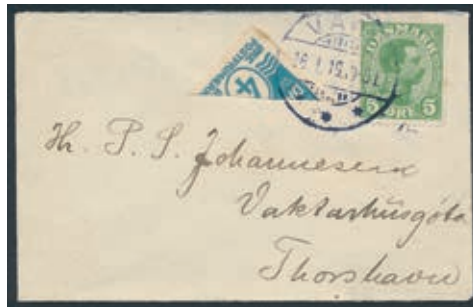 DANMARK
5 ØRE 5
4
Hr. P. S. Johannesen
Vaktarhúsgöta
Thorshavn